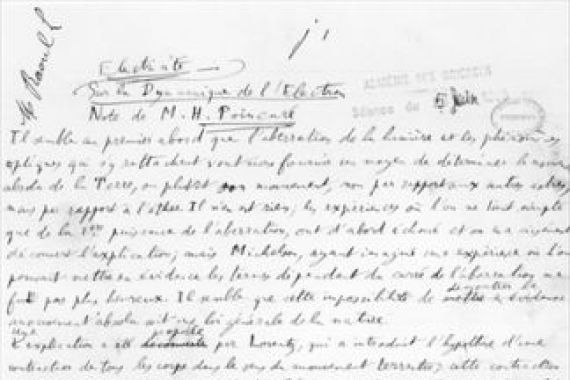 j 1
Electricité
Sur la Dynamique de l'Electron
Note de M. H. Poincaré
ACADÉMIE DES SCIENCES
Séance du 5 Juin
Il semble au premier abord que l'aberration de la lumière et les phénomènes
optiques qui s'y rattachent vont nous fournir un moyen de déterminer le mouvement
absolu de la Terre, ou plutôt son mouvement, non par rapport aux autres astres,
mais par rapport à l'éther. Il n'en est rien; les expériences où l'on ne tient compte
que de la 1ère puissance de l'aberration, ont d'abord échoué et on en a aisément
découvert l'explication; mais Michelson, ayant imaginé une expérience où l'on
pouvait mettre en évidence les termes dépendant du carré de l'aberration ne
fut pas plus heureux. Il semble que cette impossibilité de démontrer le
mouvement absolu soit une loi générale de la nature.
L'explication a été proposée par Lorentz, qui a introduit l'hypothèse d'une
contraction de tous les corps dans le sens du mouvement terrestre; cette contraction